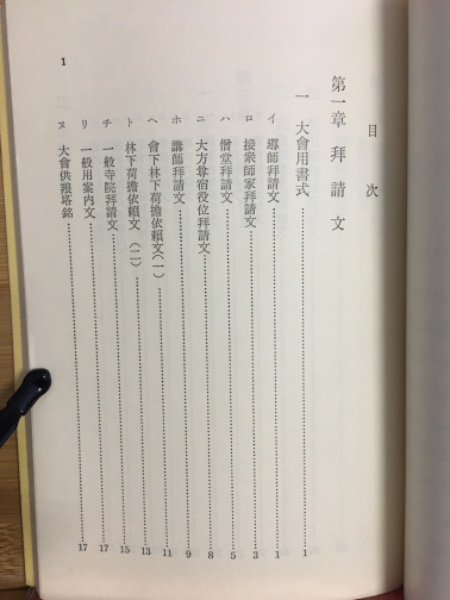 目次
第一章 拜請文
一 大會用書式……1
イ 導師拜請文……1
ロ 接衆師家拜請文……3
ハ 僧堂拜請文……5
ニ 大方尊宿役位拜請文……8
ホ 講師拜請文……9
ヘ 會下林下荷擔依賴文(一)……11
ト 林下荷擔依賴文(二)……13
チ 一般寺院拜請文……15
リ 一般用案內文……17
ヌ 大會供養塔銘……17
1